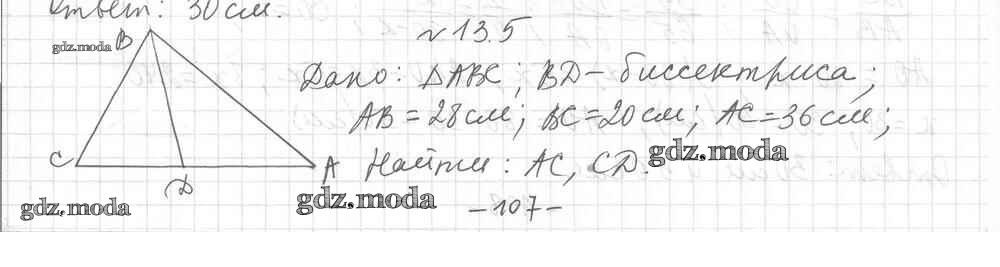 Ответ: 30 см.
№ 13.5
gdz.moda
B
Дано: △ABC; BD – биссектриса;
AB = 28 см; BC = 20 см; AC = 36 см;
C D A
Найти: AC, CD.
gdz.moda
gdz.moda
gdz.moda
– 107 –